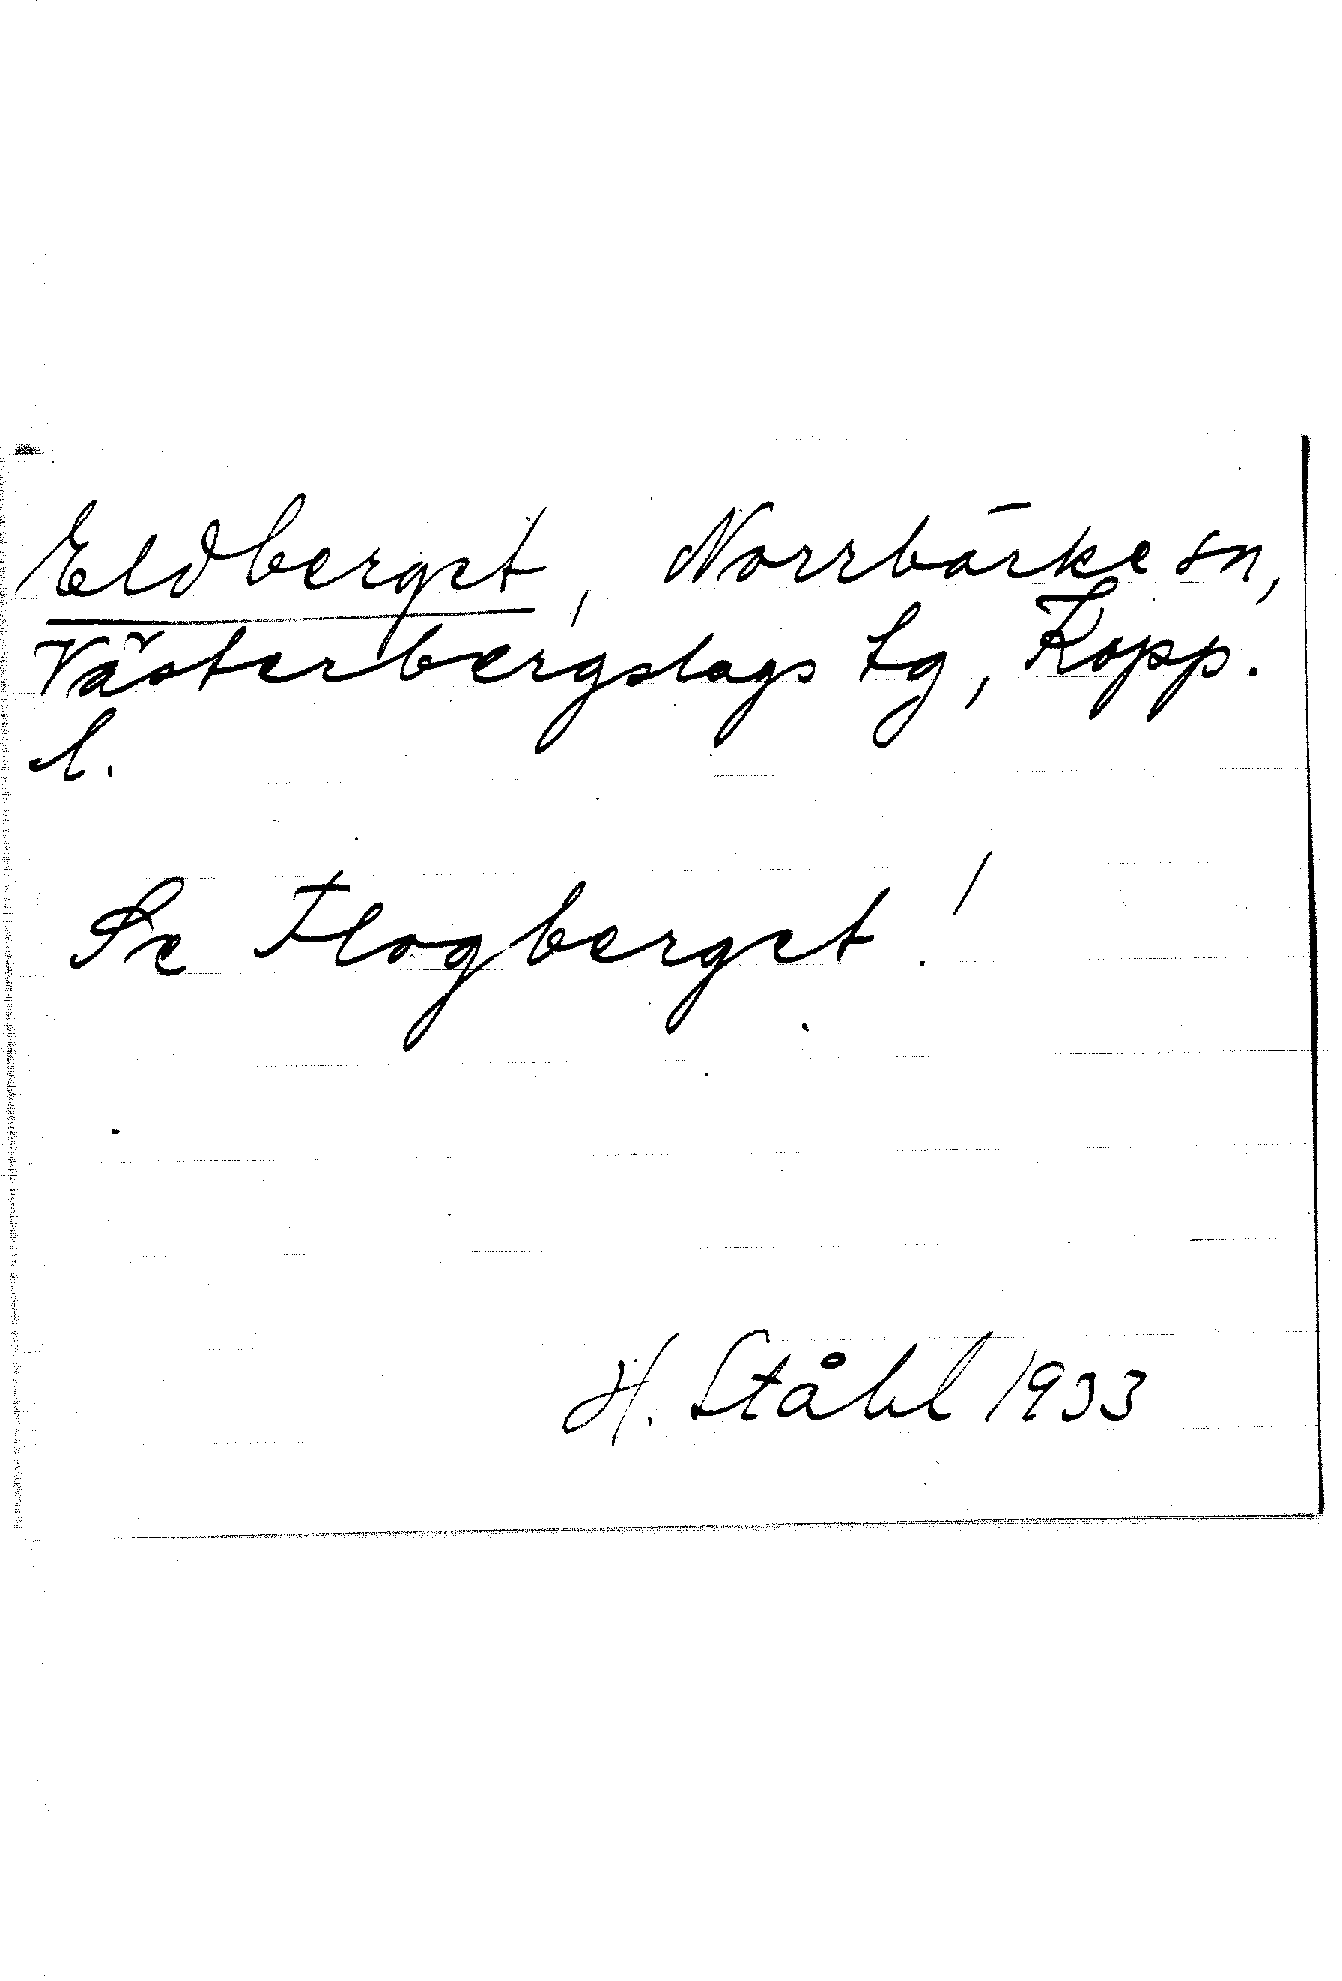 Eldberget, Norrbärke sn,
Västerbergslags tg, Kopp.
l.
Se Flogberget!
H. Ståhl 1933